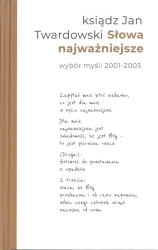 ksiądz Jan
Twardowski Słowa
najważniejsze
wybór myśli 2001-2003
Zapytał mnie ktoś niedawno,
co jest dla mnie
w życiu najważniejsze.
Dla mnie
najważniejsza jest
świadomość, że jest Bóg –
to jest pierwsza rzecz.
(Druga):
Gotowość do
i trzecia:
wiara, że Bóg